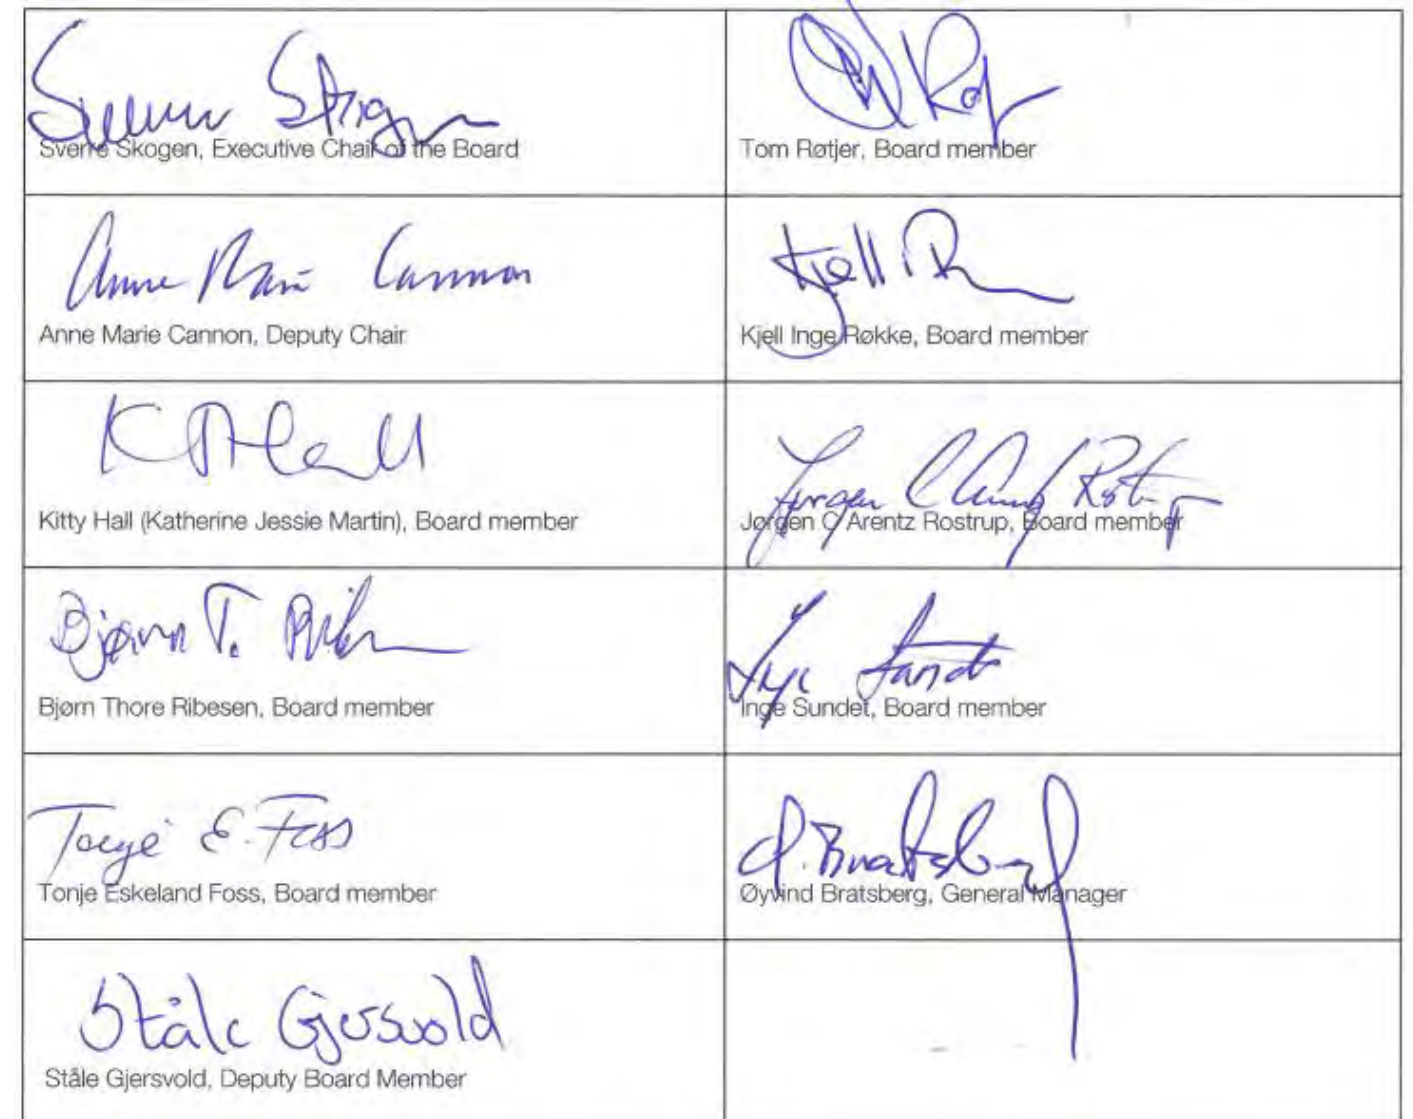 Sverre Skogen, Executive Chair of the Board
Tom Røtjer, Board member
Anne Marie Cannon
Anne Marie Cannon, Deputy Chair
Kjell
Kjell Inge Røkke, Board member
K Hall
Kitty Hall (Katherine Jessie Martin), Board member
Jørgen C Arentz Rostrup, Board member
Bjørn T.
Bjørn Thore Ribesen, Board member
Inge Sundet, Board member
Tonje E. Foss
Tonje Eskeland Foss, Board member
Ø. Bratsberg
Øyvind Bratsberg, General Manager
Ståle Gjersvold
Ståle Gjersvold, Deputy Board Member